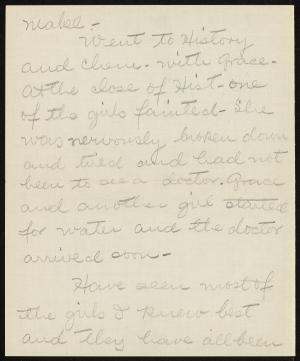 Mabel -
Went to History
and Chem. with Grace.
At the close of Hist - one
of the girls fainted - She
was nervously broken down
and tired and had not
been to see a doctor. Grace
and another girl started
for water and the doctor
arrived soon -
Have seen most of
the girls I knew best
and they have all been